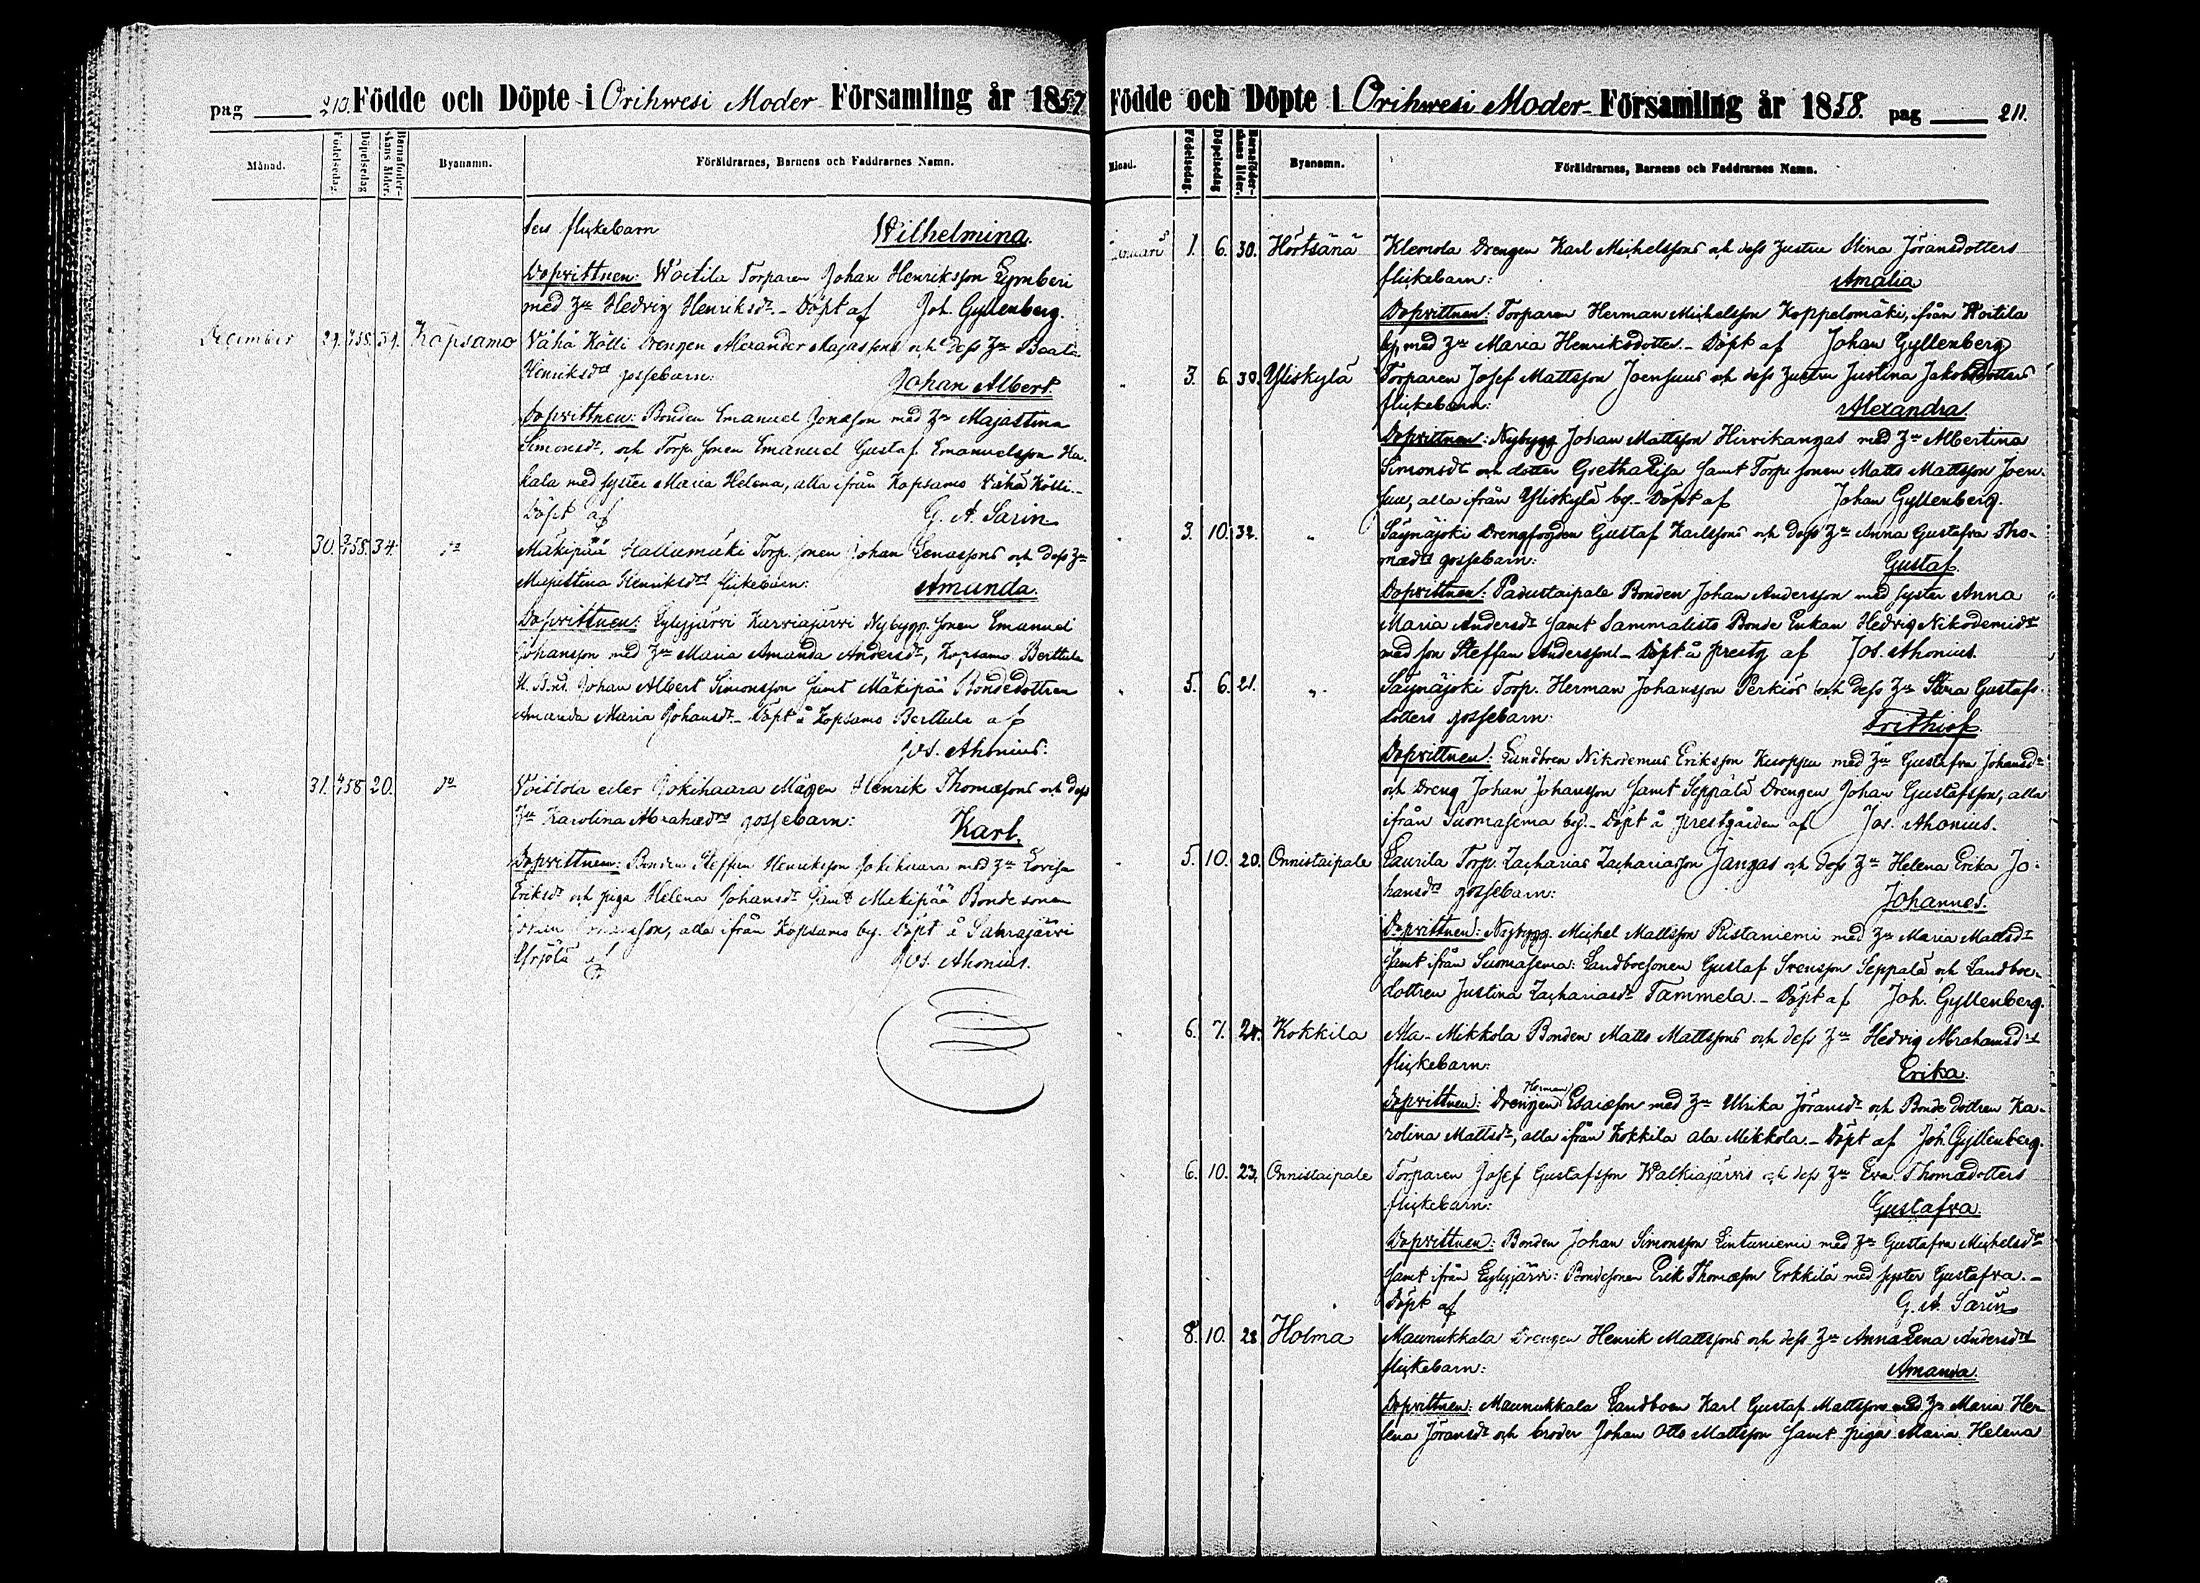 pag 210. Födde och Döpte i Orihwesi Moder Församling år 1857
Månad. Födelsedag. Döpelsedag Barnaföderskans ålder. Byanamn. Föräldrarnes, Barnens och Faddrarnes Namn.
ters flickebarn Wilhelmina.
Dopvittnen: Woitila Torparen Johan Henriksson Lymberi
med Hu Hedvig Henriksdr. - Döpt af Joh. Gyllenberg.
December 29. 58. 39. Kopsamo Vähä Kölli Drengen Alexander Majassons och dess Hu Beata
Henriksdrs gossebarn: Johan Albert.
Dopvittnen: Bonden Emanuel Jonasson med Hu Majastina
Simonsdr, och Torp. sonen Emanuel Gustaf Emanuelsson Ha-
kala med syster Maria Helena, alla ifrån Kopsamo Vähä Kölli. -
Döpt af G. A. Sarin
30. 58. 34. Do Mäkipää Hallumäki Torp. sonen Johan Enassons och dess Hu
Majastina Henriksdrs flickebarn: Amanda.
Dopvittnen: Eylyjärvi Karviajärvi Nybygg. sonen Emanuel
Johansson med Hu Maria Amanda Andersdr, Kopsamo Berttula
Bond. Johan Albert Simonsson samt Mäkipää Bondedottren
Amanda Maria Johansdr. - Döpt å Kopsamo Berttula af
Jos. Ahonius.
31. 58. 20. Do Voittola eller Jokihaara Mågen Henrik Thomassons och dess
Hu Karolina Abrahamsdrs gossebarn: Karl.
Dopvittnen: Bonden Steffan Henriksson Jokihaara med Hu Lovisa
Eriksdr och piga Helena Johansdr samt Mäkipää Bondesonen
Johansson, alla ifrån Kopsamo by. Döpt å Sahrajärvi
Yrjölä af Jos. Ahonius.
Födde och Döpte i Orihwesi Moder Församling år 1858. pag 211.
Månad. Födelsedag. Döpelsedag Barnaföderskans ålder. Byanamn. Föräldrarnes, Barnens och Faddrarnes Namn.
Januari 1. 6. 30. Hörtsänä Klemola Drengen Karl Michelssons och dess hustru Stina Jöransdotters
flickebarn: Amalia
Dopvittnen: Torparen Herman Michelsson Koppelomäki, ifrån Woitila
by, med Hu Maria Henriksdotter. - Döpt af Johan Gyllenberg
3. 6. 39. Yliskylä Torparen Josef Mattsson Joensuus och dess hustru Justina Jakobsdotters
flickebarn: Alexandra.
Dopvittnen: Nybygg Johan Mattsson Hirvikangas med Hu Albertina
Simonsdr och dotter Gretha Lisa samt Torp. sonen Matts Mattsson Joen-
suu, alla ifrån Yliskylä by. - Döpt af Johan Gyllenberg.
3. 10. 32. " Säynäjoki Drengfogden Gustaf Karlssons och dess Hu Anna Gustafva Tho-
mædrs gossebarn: Gustaf.
Dopvittnen: Padustaipale Bonden Johan Andersson med syster Anna
Maria Andersdr samt Sammalisto Bonde Enkan Hedvig Nikodemidr
med son Steffan Andersson. - Döpt å prestg. af Jos. Ahonius.
5. 6. 21. " Säynäjoki Torp. Herman Johansson Perkiös och dess Hu Stina Gustafs-
dotters gossebarn: Frithiof
Dopvittnen: Landboen Nikodemus Eriksson Kuoppu med Hu Gustafva Johansdr
och Dreng Johan Johansson samt Seppälä Drengen Johan Gustafsson, alla
ifrån Suomasema by. - Döpt å prestgården af Jos. Ahonius.
5. 10. 20. Onnistaipale Laurila Torp. Zacharias Zachariasson Jangas och dess Hu Helena Erika Jo-
hansdrs gossebarn: Johannes.
Dopvittnen: Nybygg. Michel Mattsson Ristaniemi med Hu Maria Mattsdr
samt ifrån Suomasema: Landboesonen Gustaf Svensson Seppälä och Landboe-
dottren Justina Zachariasdr Tammela. - Döpt af Joh. Gyllenberg.
6. 7. 24. Kokkila Ala-Mikkola Bonden Matts Mattssons och dess Hu Hedvig Abrahamsdrs
flickebarn: Erika
Dopvittnen: Drengen Herman Esaiasson med Hu Ulrika Jöransdr och Bondedottren Ka-
rolina Mattsdr, alla ifrån Kokkila Ala Mikkola. - Döpt af Joh. Gyllenberg.
6. 10. 23. Onnistaipale Torparen Josef Gustafsson Walkiajärvis och dess Hu Eva Thomædotters
flickebarn: Gustafva.
Dopvittnen: Bonden Johan Simonsson Lintuniemi med Hu Gustafva Michelsdr
samt ifrån Eylyjärvi: Bondesonen Erik Thomasson Erkkilä med syster Gustafva. -
Döpt af G. A. Sarin
8. 10. 28. Holma Maunukkala Drengen Henrik Mattssons och dess Hu Anna Lena Andersdrs
flickebarn: Amanda.
Dopvittnen: Maunukkala Landboen Karl Gustaf Mattsson med Hu Maria He-
lena Jöransdr och broder Johan Otto Mattsson samt pigan Maria Helena